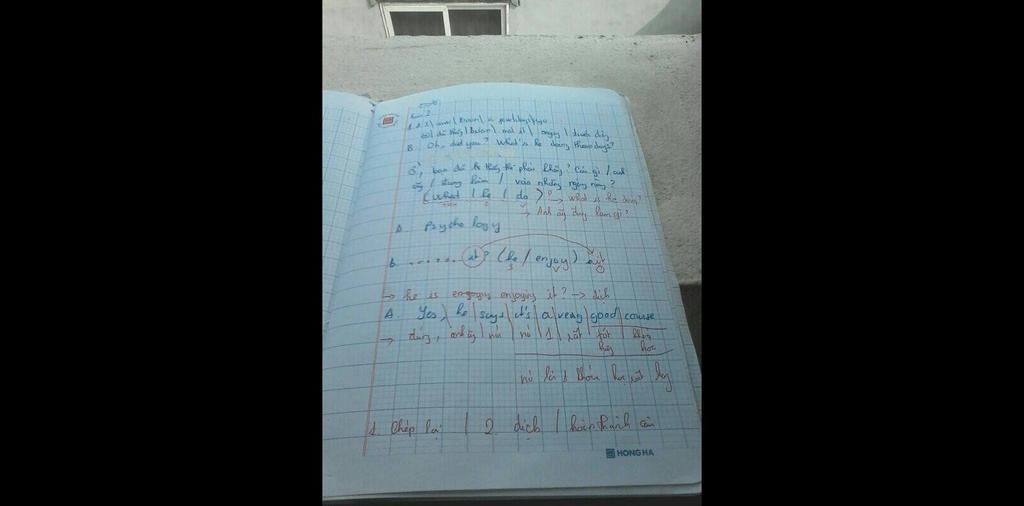 Bài 2
A. I saw | Brian | a few days ago
tôi đã thấy | Brian | một ít | ngày | trước đây
B. Oh, did you? What's he doing these days?
ồ, bạn đã thế phải không? Cái gì / anh
ấy / đang làm / vào những ngày này?
(what / he / do)? → what is he doing?
→ Anh ấy đang làm gì?
A. Psychology
B. ....... it? (he / enjoy) it
S V O
→ he is enjoying it? → dịch
A. Yes, he | says | it's | a | very | good | course
→ đúng, anh ấy | nói | nó | 1 | rất | tốt | khóa
hay học
nó là 1 khóa học rất hay
1. Chép lại | 2. dịch | hoàn thành câu
HONG HA